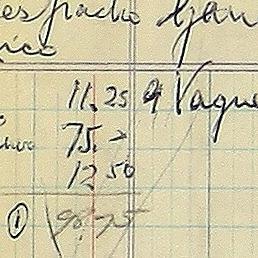 espacho Gan
ico
11.25 9 Vague
75.-
12 50
① 98.75